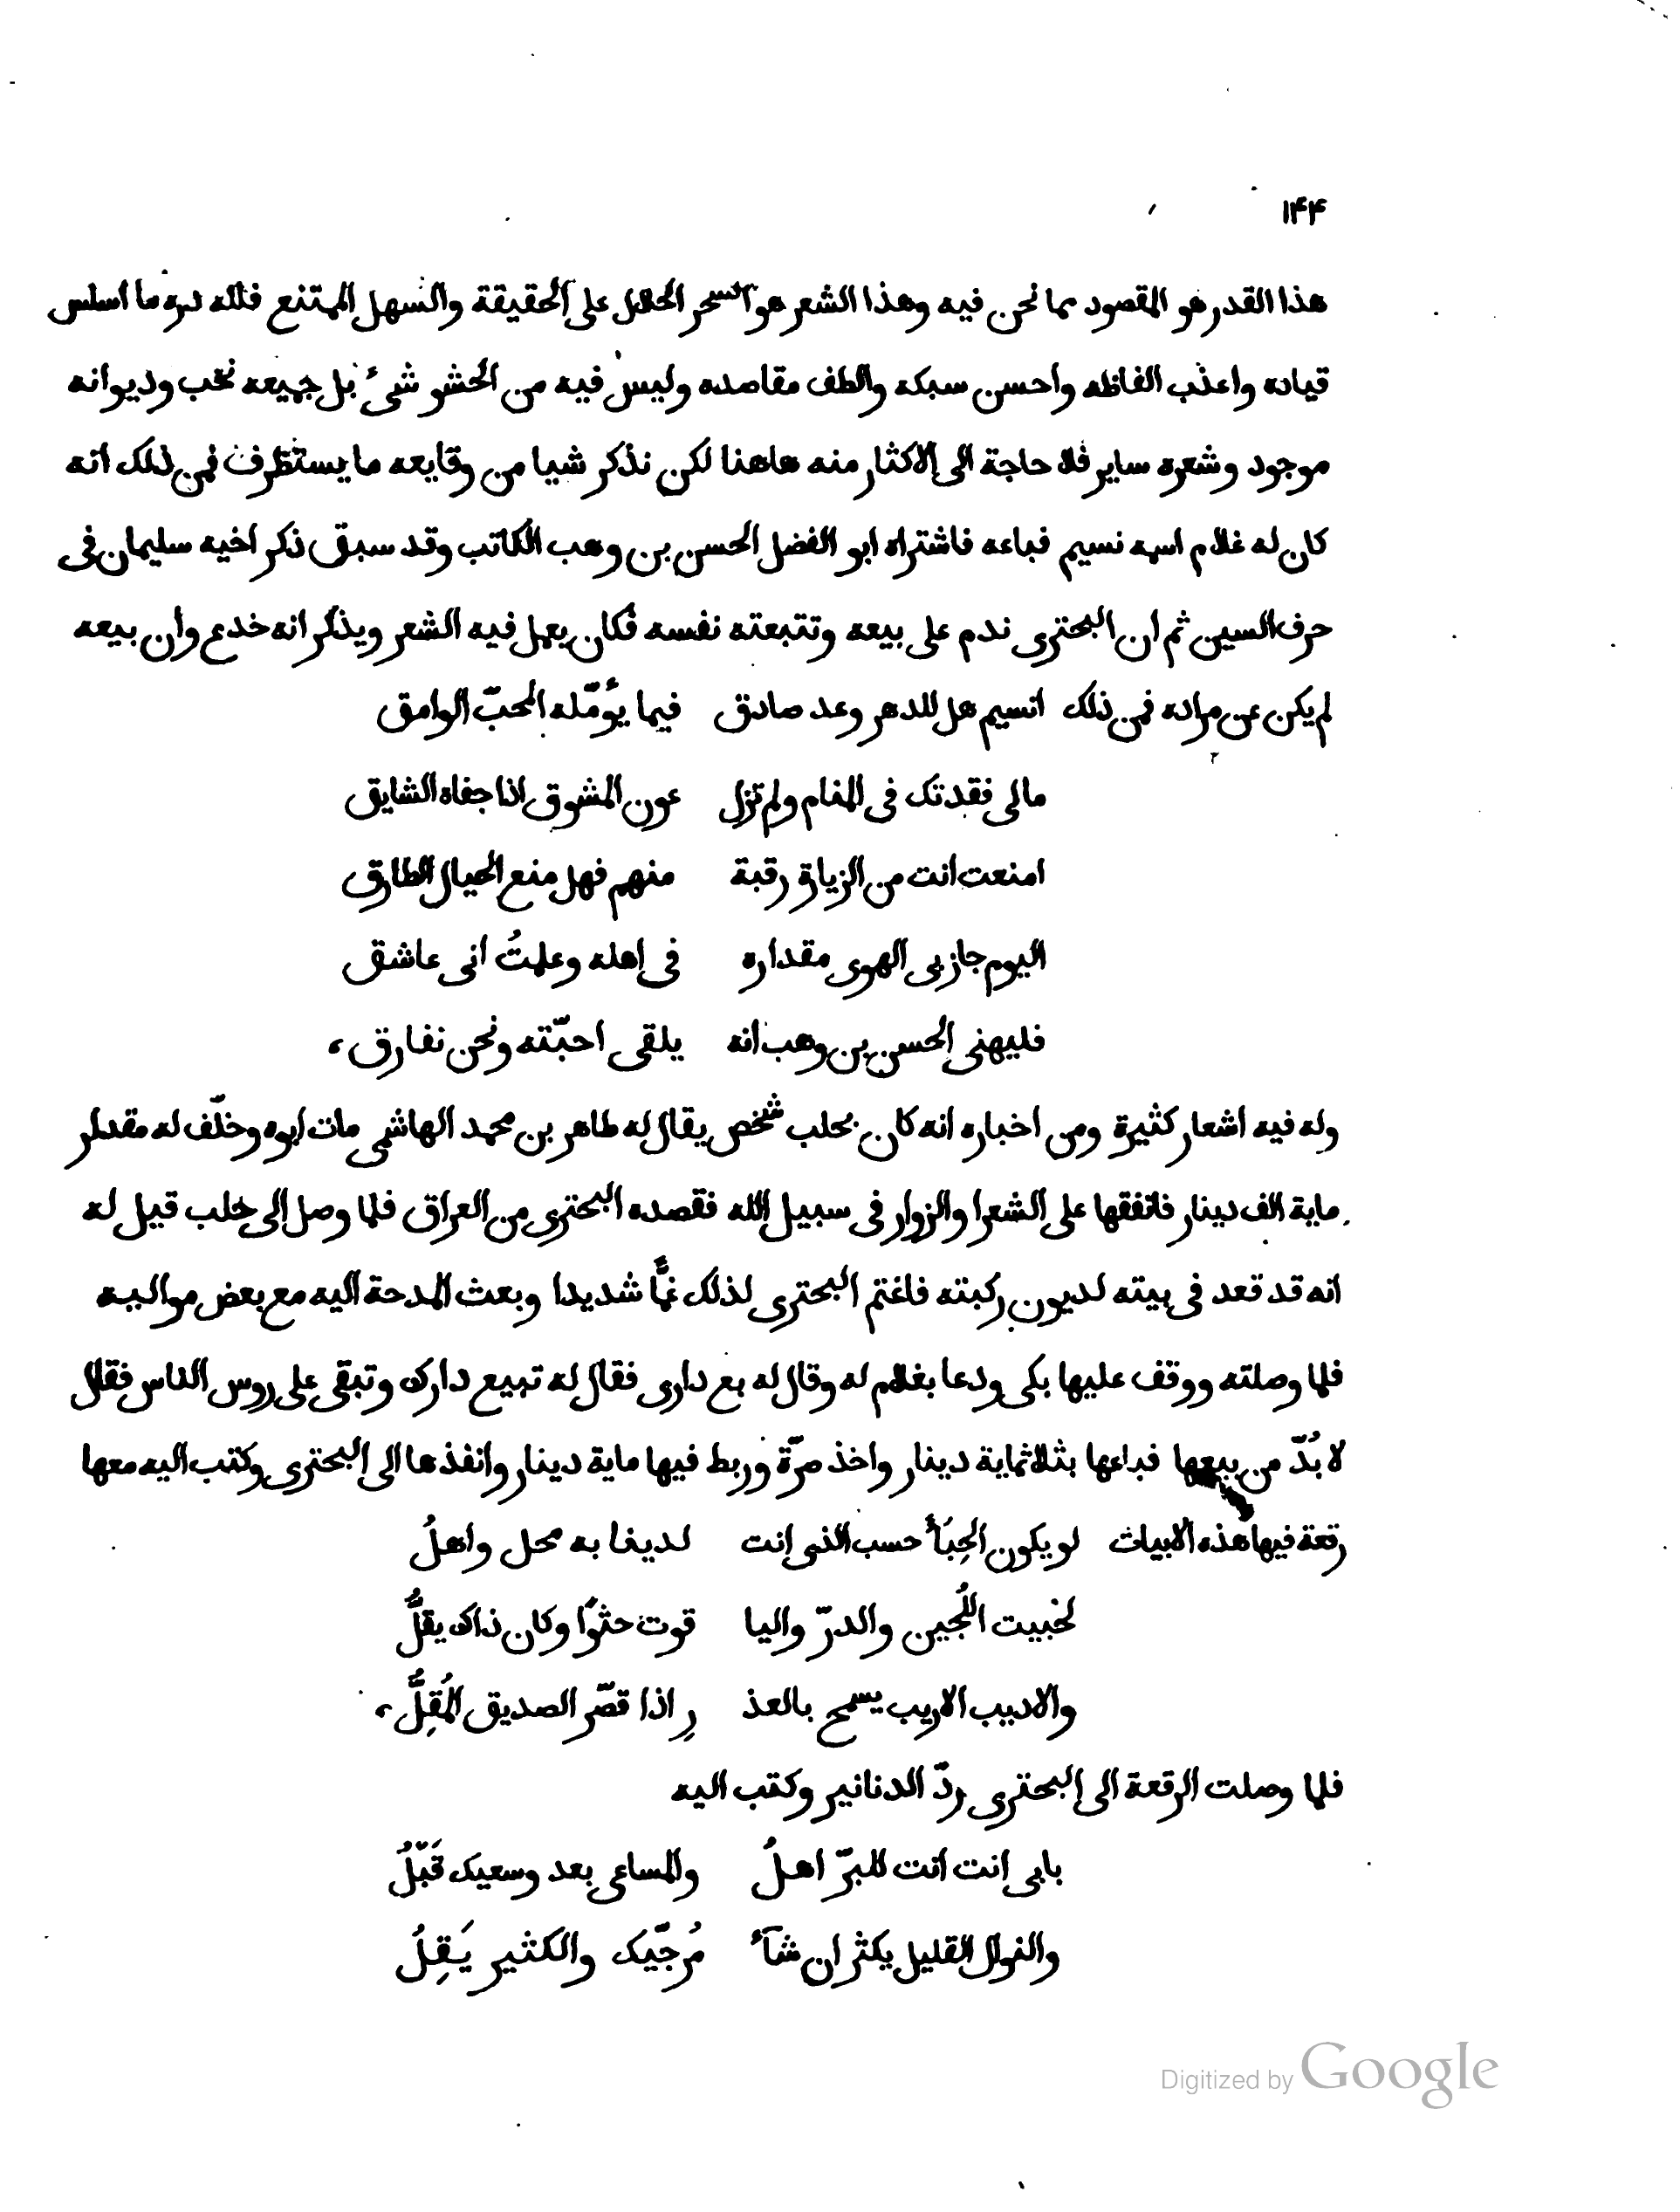 ١۴۴
هذا القدر هو المقصود مما نحن فيه وهذا الشعر هو السحر الحلال على الحقيقة والسهل الممتنع فلله دره ما اسلس
قياده واعذب الفاظه واحسن سبكه والطف مقاصده وليس فيه من الحشو شىء بل جميعه نخب وديوانه
موجود وشعره ساير فلا حاجة الى الاكثار منه هاهنا لكن نذكر شيا من وقايعه ما يستظرف فمن ذلك انه
كان له غلام اسمه نسيم فباعه فاشتراه ابو الفضل الحسن بن وهب الكاتب وقد سبق ذكر اخيه سليمان فى
حرف السين ثم ان البحترى ندم على بيعه وتتبعته نفسه فكان يعمل فيه الشعر ويذكر انه خدع وان بيعه
لم يكن عن مراده فمن ذلك انسيم هل للدهر وعد صادق فيما يؤمّله المحبّ الوامق
مالى فقدتك فى المنام ولم تزل عون المشوق اذا جفاه الشايق
امنعت انت من الزيارة رقبة منهم فهل منع الخيال الطارق
اليوم جاز بى الهوى مقداره فى اهله وعلمتُ انى عاشق
فليهنى الحسن بن وهب انه يلقى احبّته ونحن نفارق،
وله فيه اشعار كثيرة ومن اخباره انه كان بحلب شخص يقال له طاهر بن محمد الهاشمى مات ابوه وخلّف له مقدار
ماية الف دينار فانفقها على الشعرا والزوار فى سبيل الله فقصده البحترى من العراق فلما وصل الى حلب قيل له
انه قد قعد فى بيته لديون ركبته فاغتم البحترى لذلك غمًّا شديدا وبعث المدحة اليه مع بعض مواليه
فلما وصلته ووقف عليها بكى ودعا بغلام له وقال له بع دارى فقال له تبيع دارك وتبقى على روس الناس فقال
لا بُدّ من بيعها فباعها بثلاثماية دينار واخذ صرّة وربط فيها ماية دينار وانفذها الى البحترى وكتب اليه معها
رقعة فيها هذه الابيات لو يكون الحِبَأُ حسب الذى انت لدينا به محل واهلُ
لحبيت اللُجين والدرّ واليا قوت حثوًا وكان ذاك يقلُّ
والاديب الاريب يسمح بالعذ رِ اذا قصّر الصديق المُقِلُّ،
فلما وصلت الرقعة الى البحترى ردّ الدنانير وكتب اليه
بابى انت انت للبرّ اهلُ والمساعى بعد وسعيك قَبّلُ
والنوال القليل يكثر ان شآءُ مُرجّيك والكثير يَقِلُ
Digitized by Google